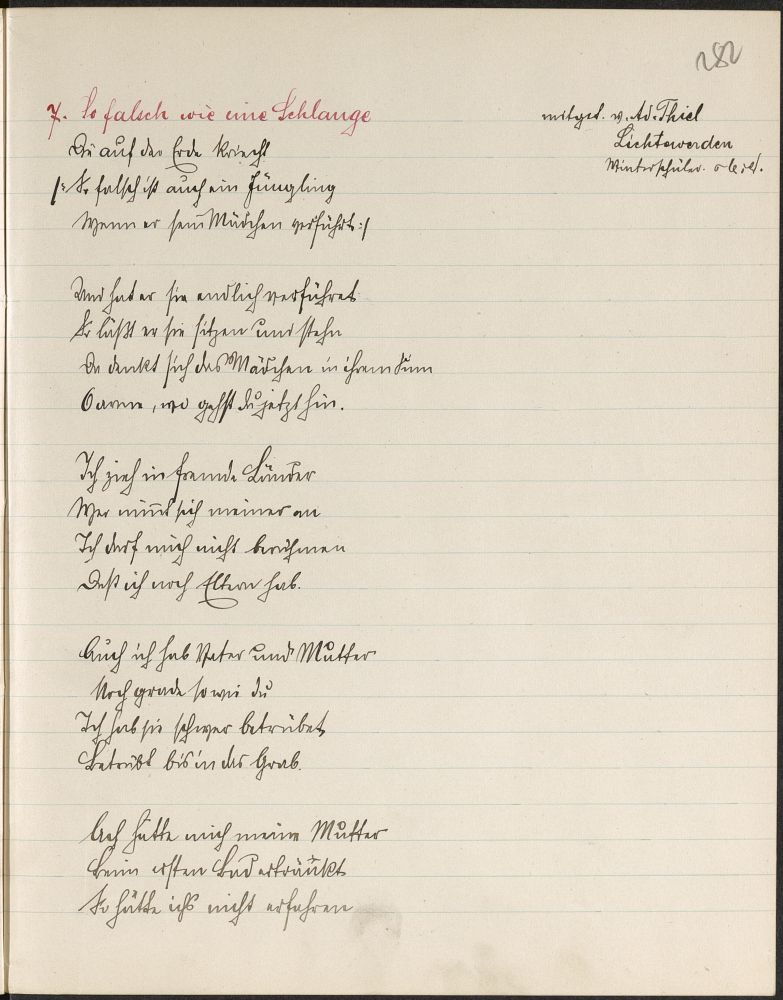 282
7. So falsch wie eine Schlange
mitget. v. Ad. Thiel
Lichtewerden
Winterschüler.
Die auf der Erde kriecht
/: So falsch ist auch ein Jüngling
Wenn er sein Mädchen verführt :/
Und hat er sie endlich verführet
So läßt er sie sitzen und stehn
Da denkt sich das Mädchen in ihrem Sinn
O arme, wo gehst du jetzt hin.
Ich zieh in fremde Länder
Wer nim̄t sich meiner an
Ich darf mich nicht berühmen
Daß ich noch Eltern hab.
Auch ich hab Vater und Mutter
Noch grade so wie du
Ich hab sie schwer betrübet
Betrübt bis in das Grab.
Ach hätte mich meine Mutter
Beim ersten Bad ertränkt
So hätte ichs nicht erfahren